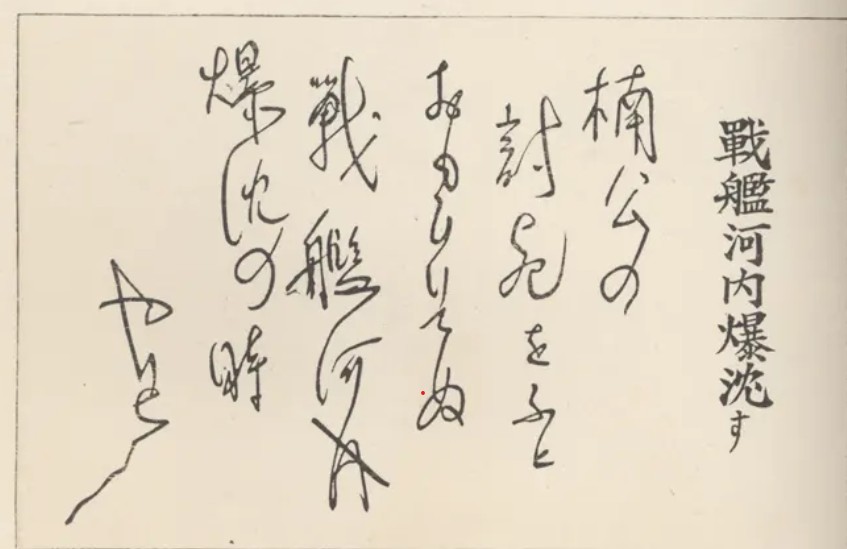 戰艦河内爆沈す
楠公の
討死をふと
おもひいでぬ
戰艦河内
爆沈の時